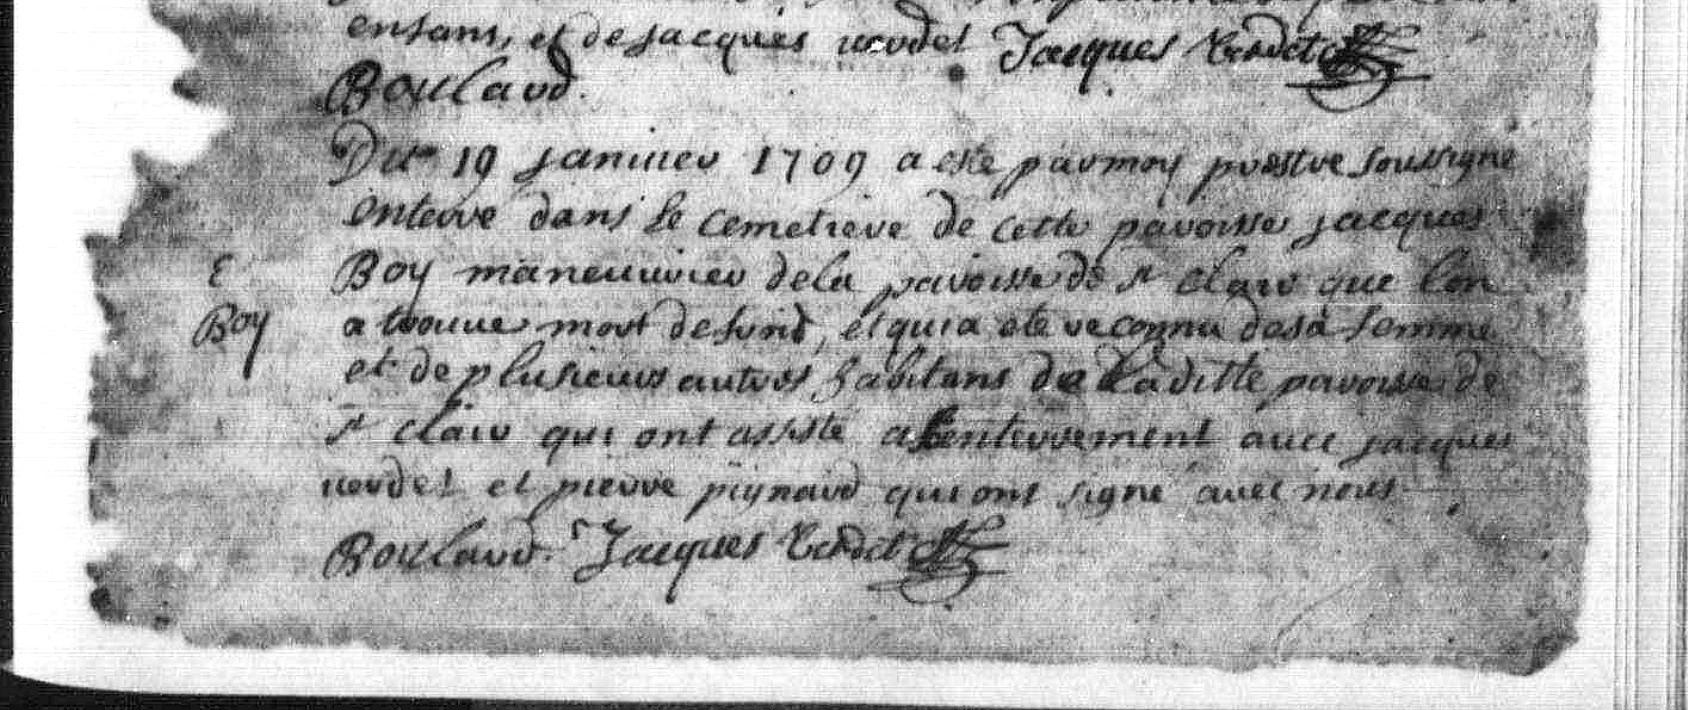 enfans, et de jacques verdet Jacques Verdet
Boulard.
Du 19 januier 1709 a esté par moy prestre soussigné
enterré dans le cemetiere de cette paroisse jacques
E Boy maneuurier de la paroisse de st clair que lon
Boy a trouué mort de froid, et qui a eté reconnu de sa femme
et de plusieurs autres habitans de laditte paroisse de
st clair qui ont assisté a lenterrement auec jacques
uerdet et pierre pignard qui ont signé auec nous
Boulard. Jacques Verdet